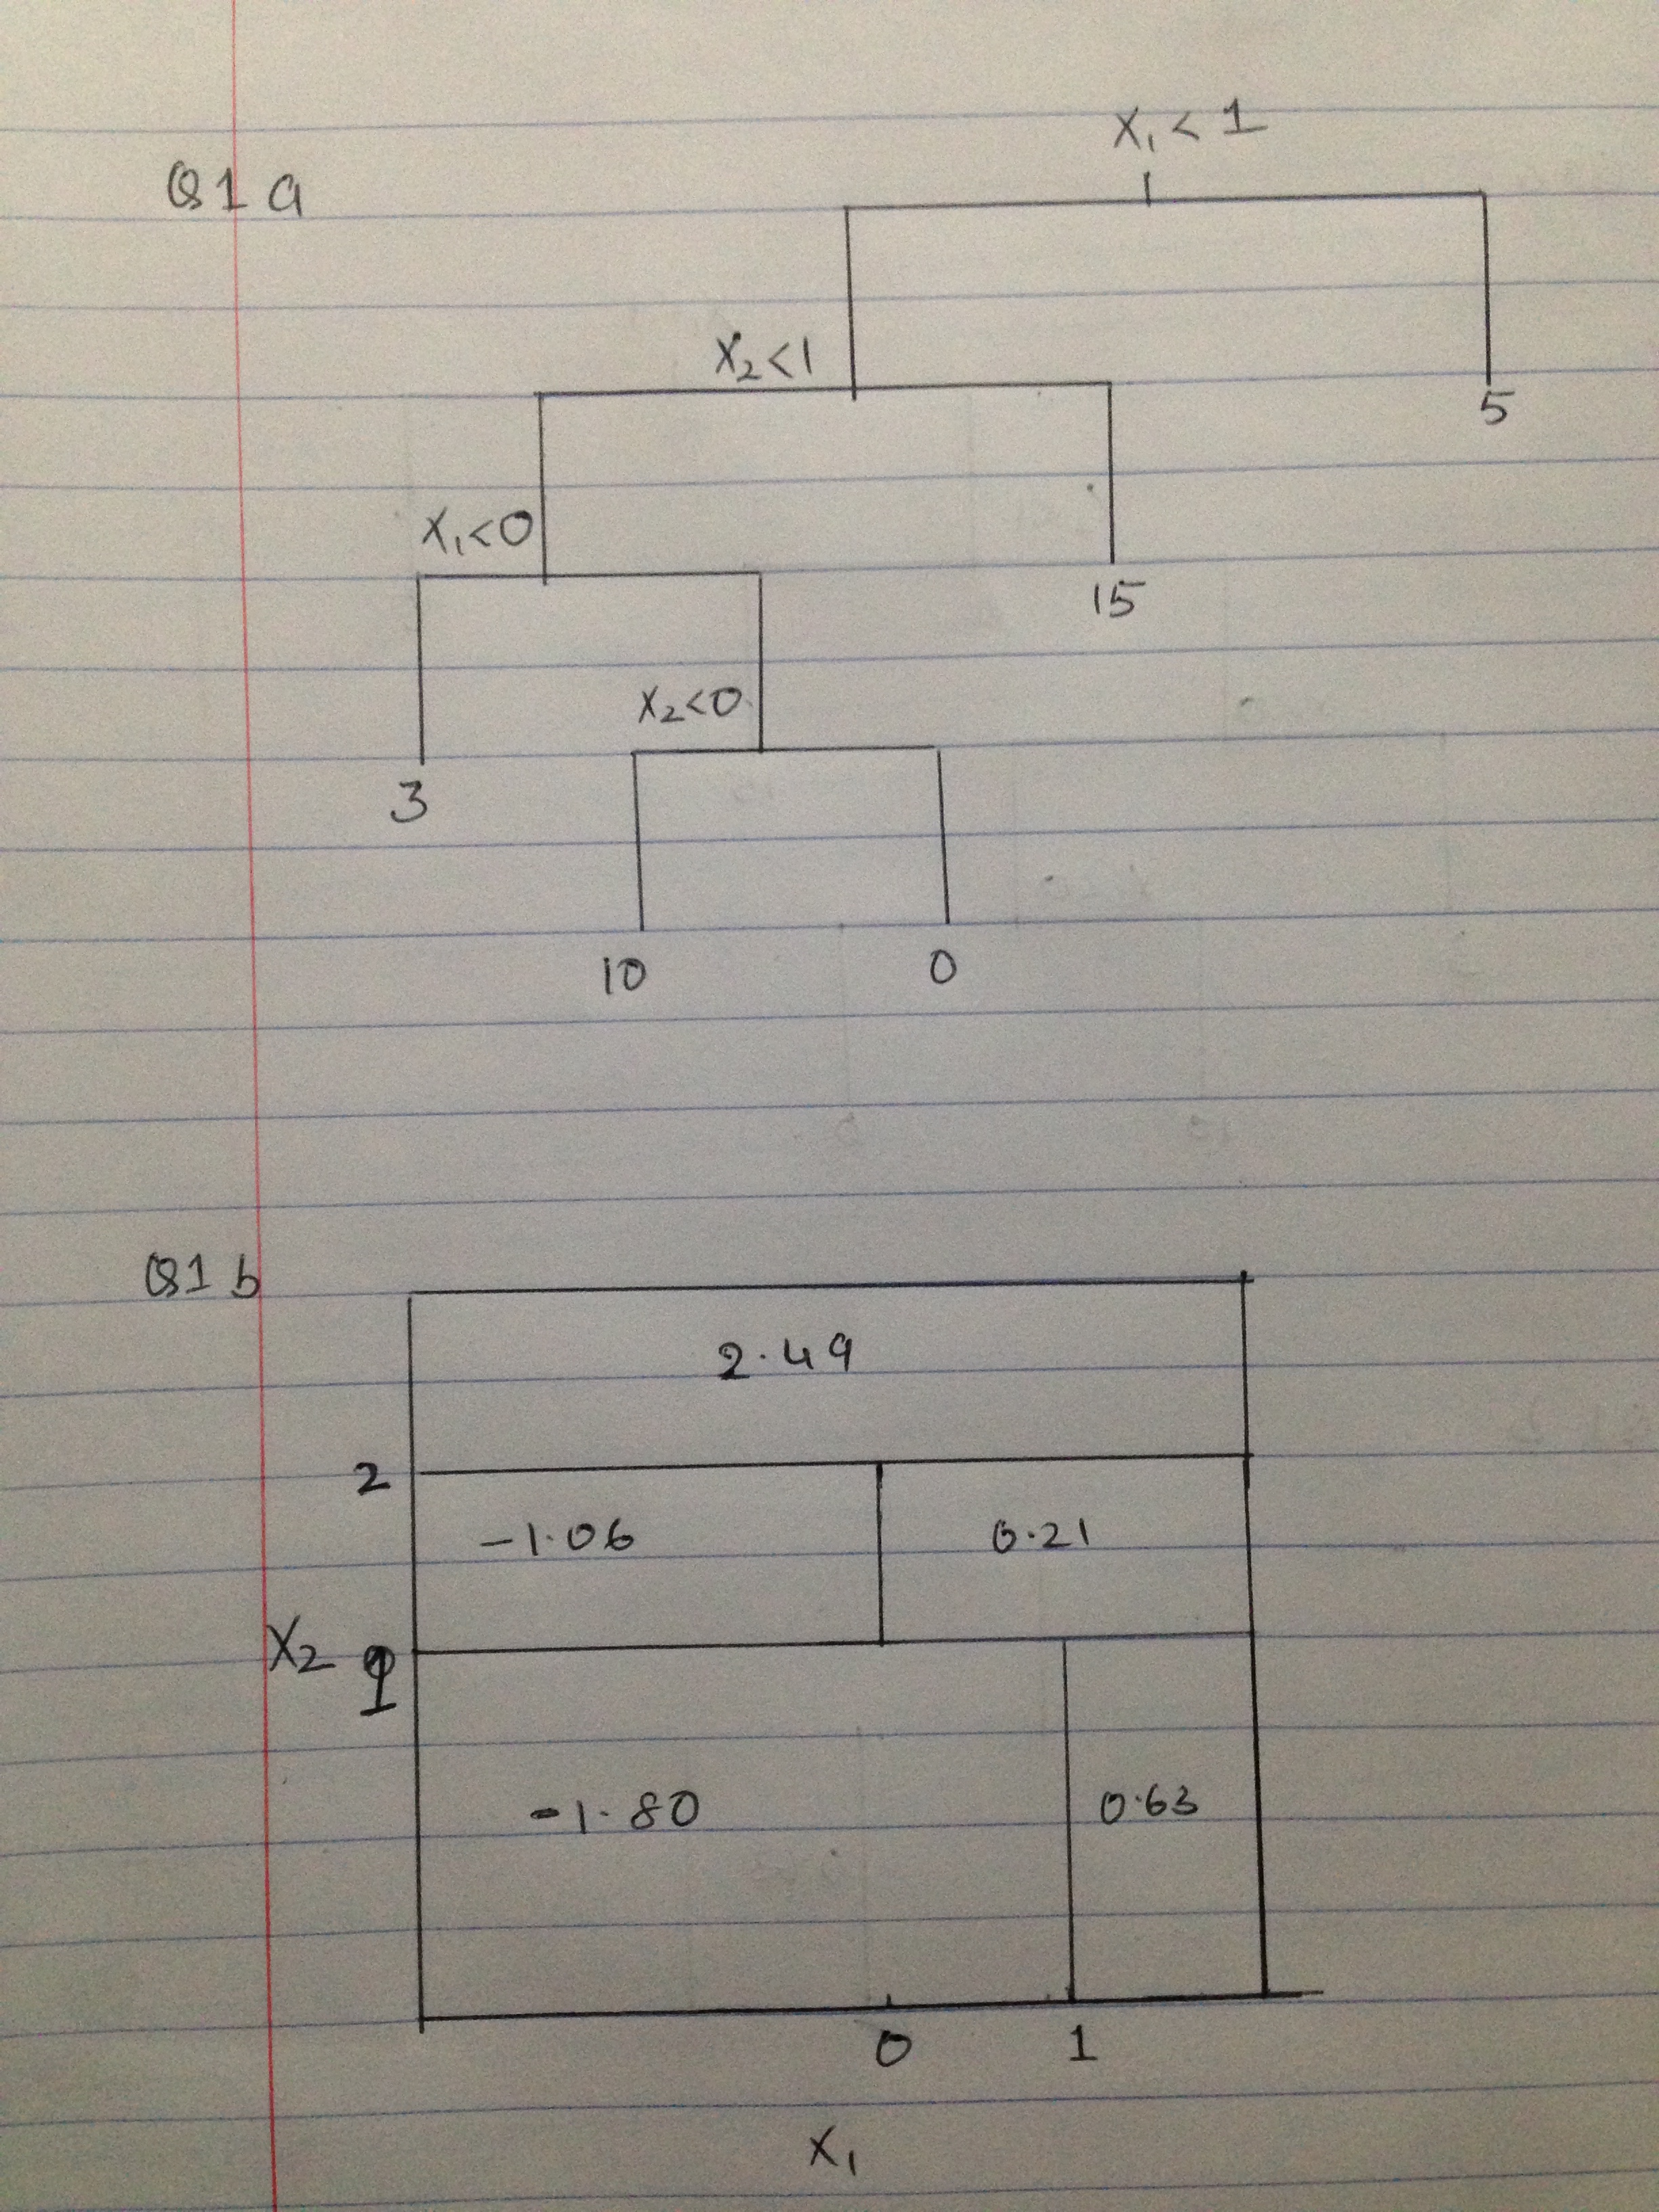 X₁ < 1
Q1 a
X₂<1
5
X₁<0
15
X₂<0
3
10 0
Q1 b
2.49
2
-1.06 0.21
X₂ 1
-1.80 0.63
0 1
X₁